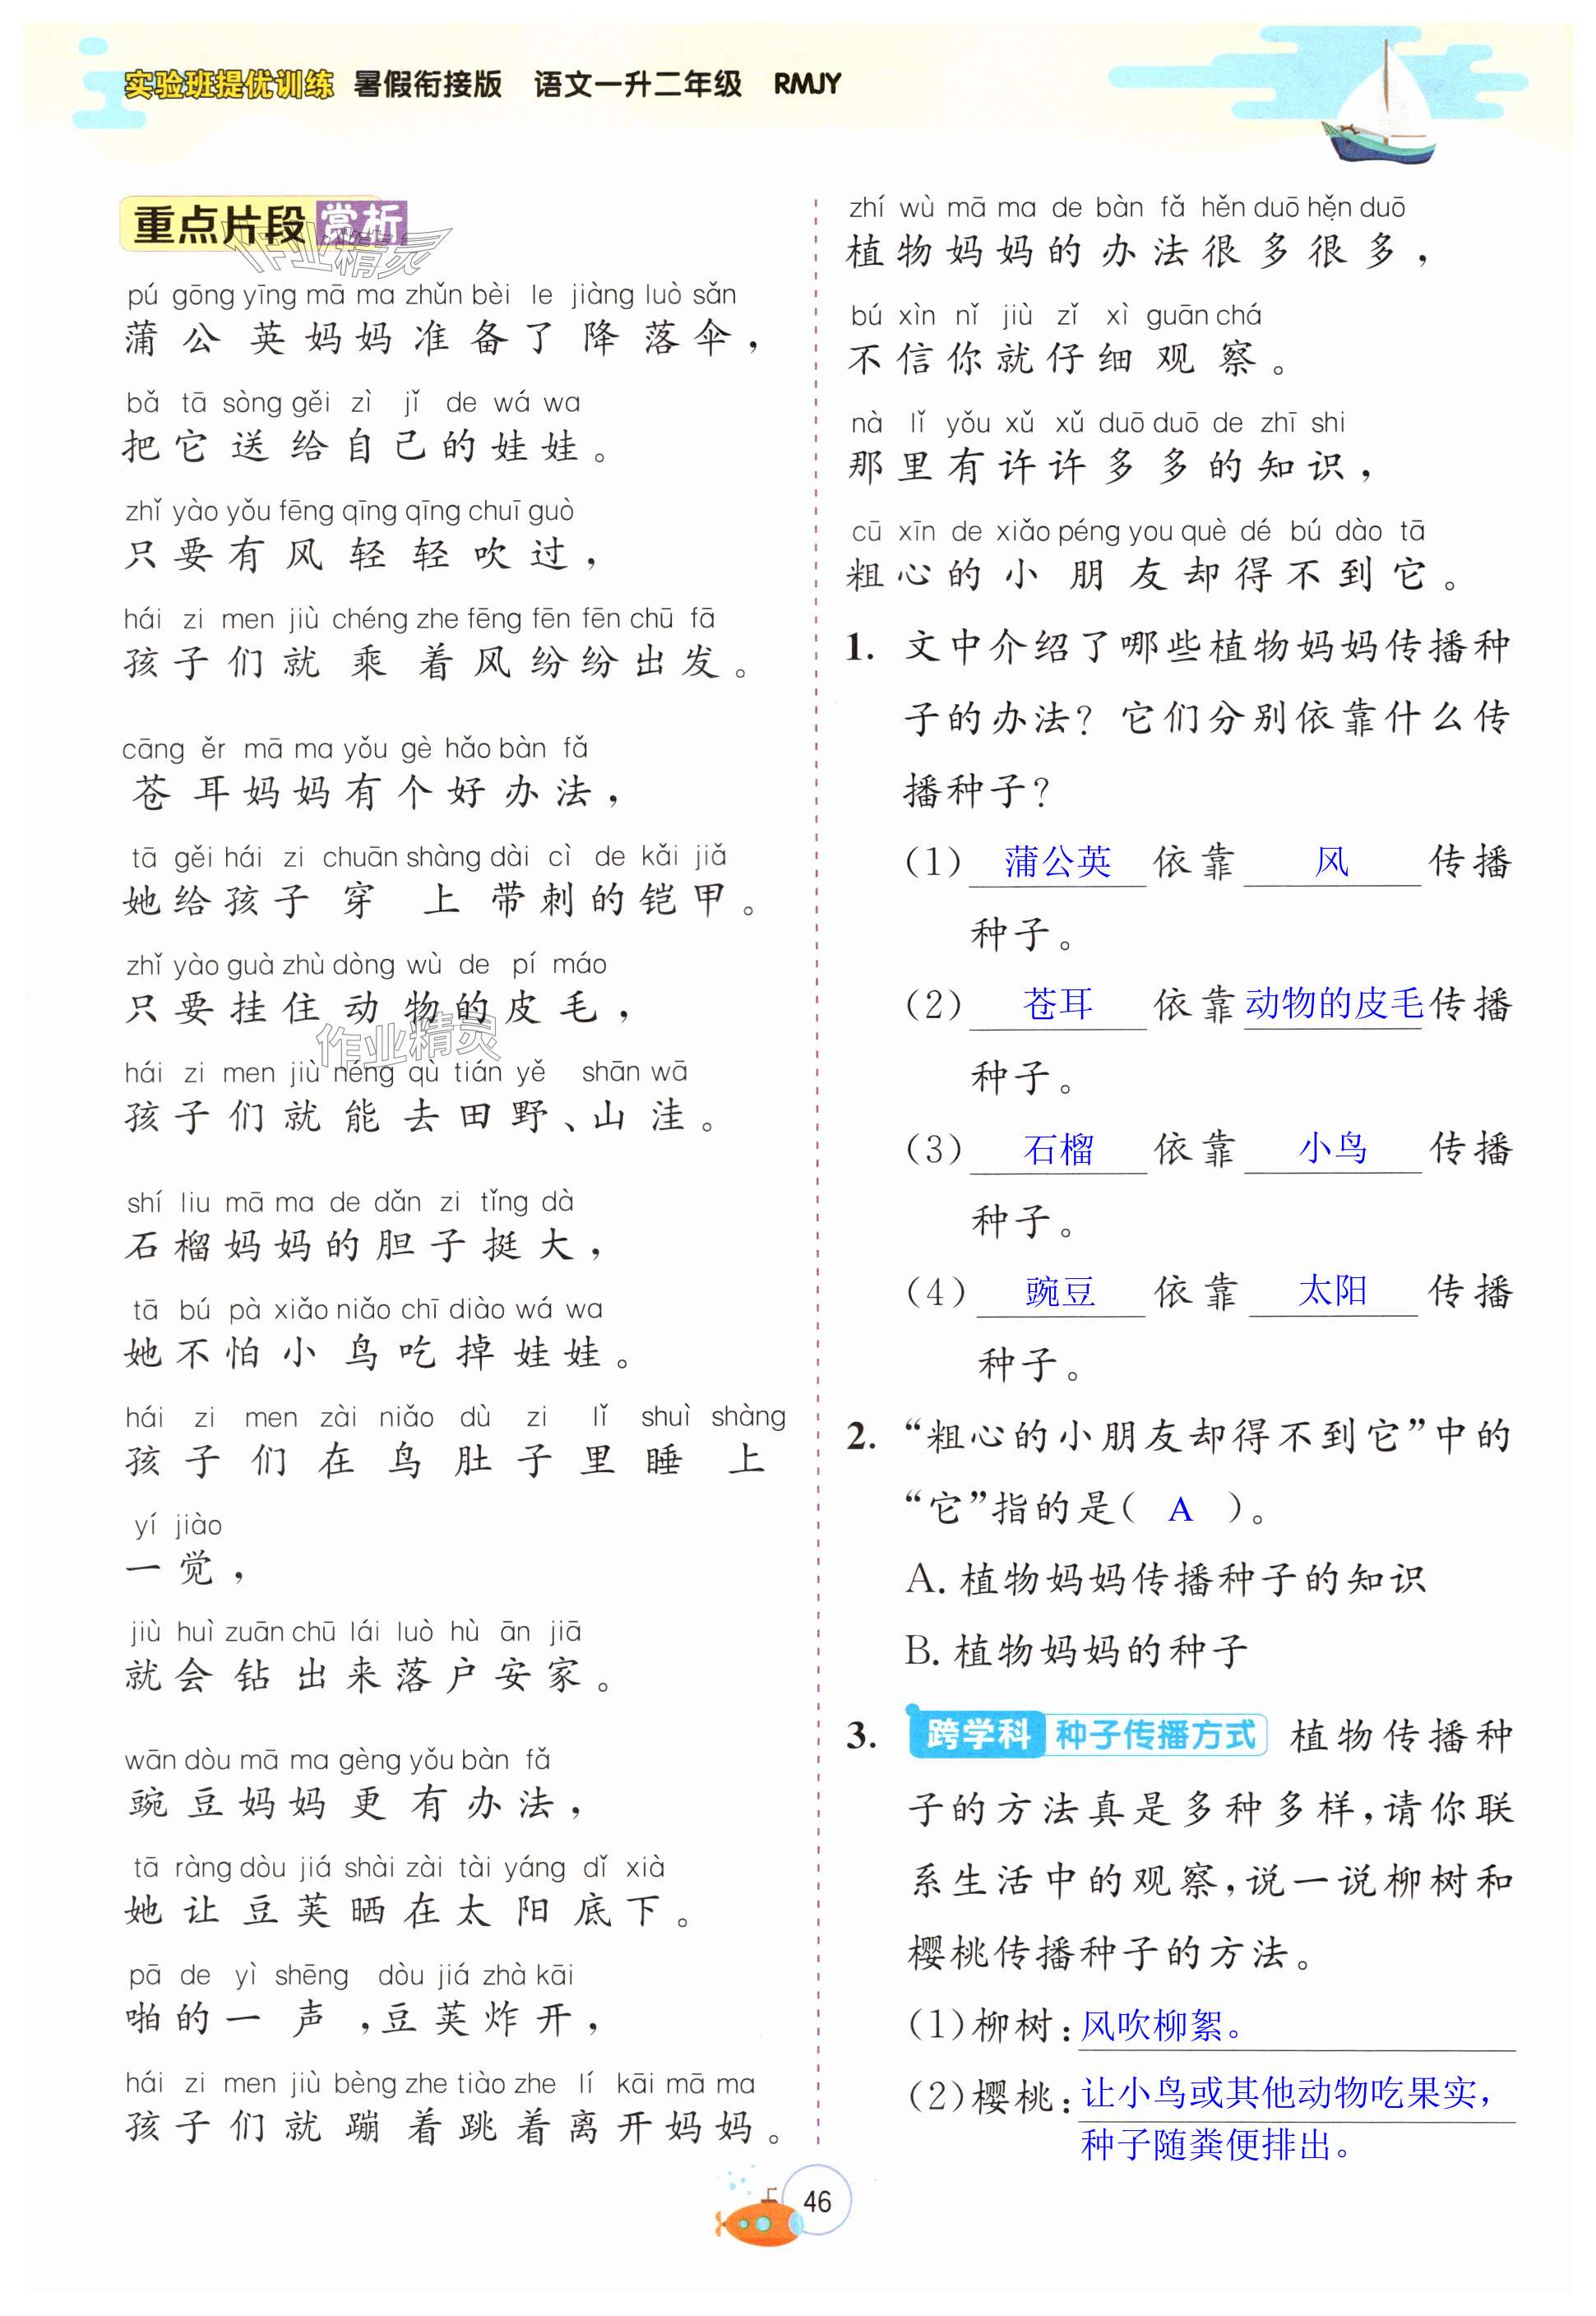 实验班提优训练 暑假衔接版 语文一升二年级 RMJY
重点片段赏析
作业精灵
pú gōng yīng mā ma zhǔn bèi le jiàng luò sǎn
蒲公英妈妈准备了降落伞，
bǎ tā sòng gěi zì jǐ de wá wa
把它送给自己的娃娃。
zhǐ yào yǒu fēng qīng qīng chuī guò
只要有风轻轻吹过，
hái zi men jiù chéng zhe fēng fēn fēn chū fā
孩子们就乘着风纷纷出发。
cāng ěr mā ma yǒu gè hǎo bàn fǎ
苍耳妈妈有个好办法，
tā gěi hái zi chuān shàng dài cì de kǎi jiǎ
她给孩子穿上带刺的铠甲。
zhǐ yào guà zhù dòng wù de pí máo
只要挂住动物的皮毛，
作业精灵
hái zi men jiù néng qù tián yě shān wā
孩子们就能去田野、山洼。
shí liu mā ma de dǎn zi tǐng dà
石榴妈妈的胆子挺大，
tā bú pà xiǎo niǎo chī diào wá wa
她不怕小鸟吃掉娃娃。
hái zi men zài niǎo dù zi lǐ shuì shàng
孩子们在鸟肚子里睡上
yí jiào
一觉，
jiù huì zuān chū lái luò hù ān jiā
就会钻出来落户安家。
wān dòu mā ma gèng yǒu bàn fǎ
豌豆妈妈更有办法，
tā ràng dòu jiá shài zài tài yáng dǐ xià
她让豆荚晒在太阳底下。
pā de yì shēng dòu jiá zhà kāi
啪的一声，豆荚炸开，
hái zi men jiù bèng zhe tiào zhe lí kāi mā ma
孩子们就蹦着跳着离开妈妈。
zhí wù mā ma de bàn fǎ hěn duō hěn duō
植物妈妈的办法很多很多，
bú xìn nǐ jiù zǐ xì guān chá
不信你就仔细观察。
nà lǐ yǒu xǔ xǔ duō duō de zhī shi
那里有许许多多的知识，
cū xīn de xiǎo péng you què dé bú dào tā
粗心的小朋友却得不到它。
1. 文中介绍了哪些植物妈妈传播种
子的办法？它们分别依靠什么传
播种子？
(1) 蒲公英 依靠 风 传播
种子。
(2) 苍耳 依靠 动物的皮毛 传播
种子。
(3) 石榴 依靠 小鸟 传播
种子。
(4) 豌豆 依靠 太阳 传播
种子。
2. “粗心的小朋友却得不到它”中的
“它”指的是( A )。
A. 植物妈妈传播种子的知识
B. 植物妈妈的种子
3. 跨学科 种子传播方式 植物传播种
子的方法真是多种多样，请你联
系生活中的观察，说一说柳树和
樱桃传播种子的方法。
(1)柳树：风吹柳絮。
(2)樱桃：让小鸟或其他动物吃果实，
种子随粪便排出。
46